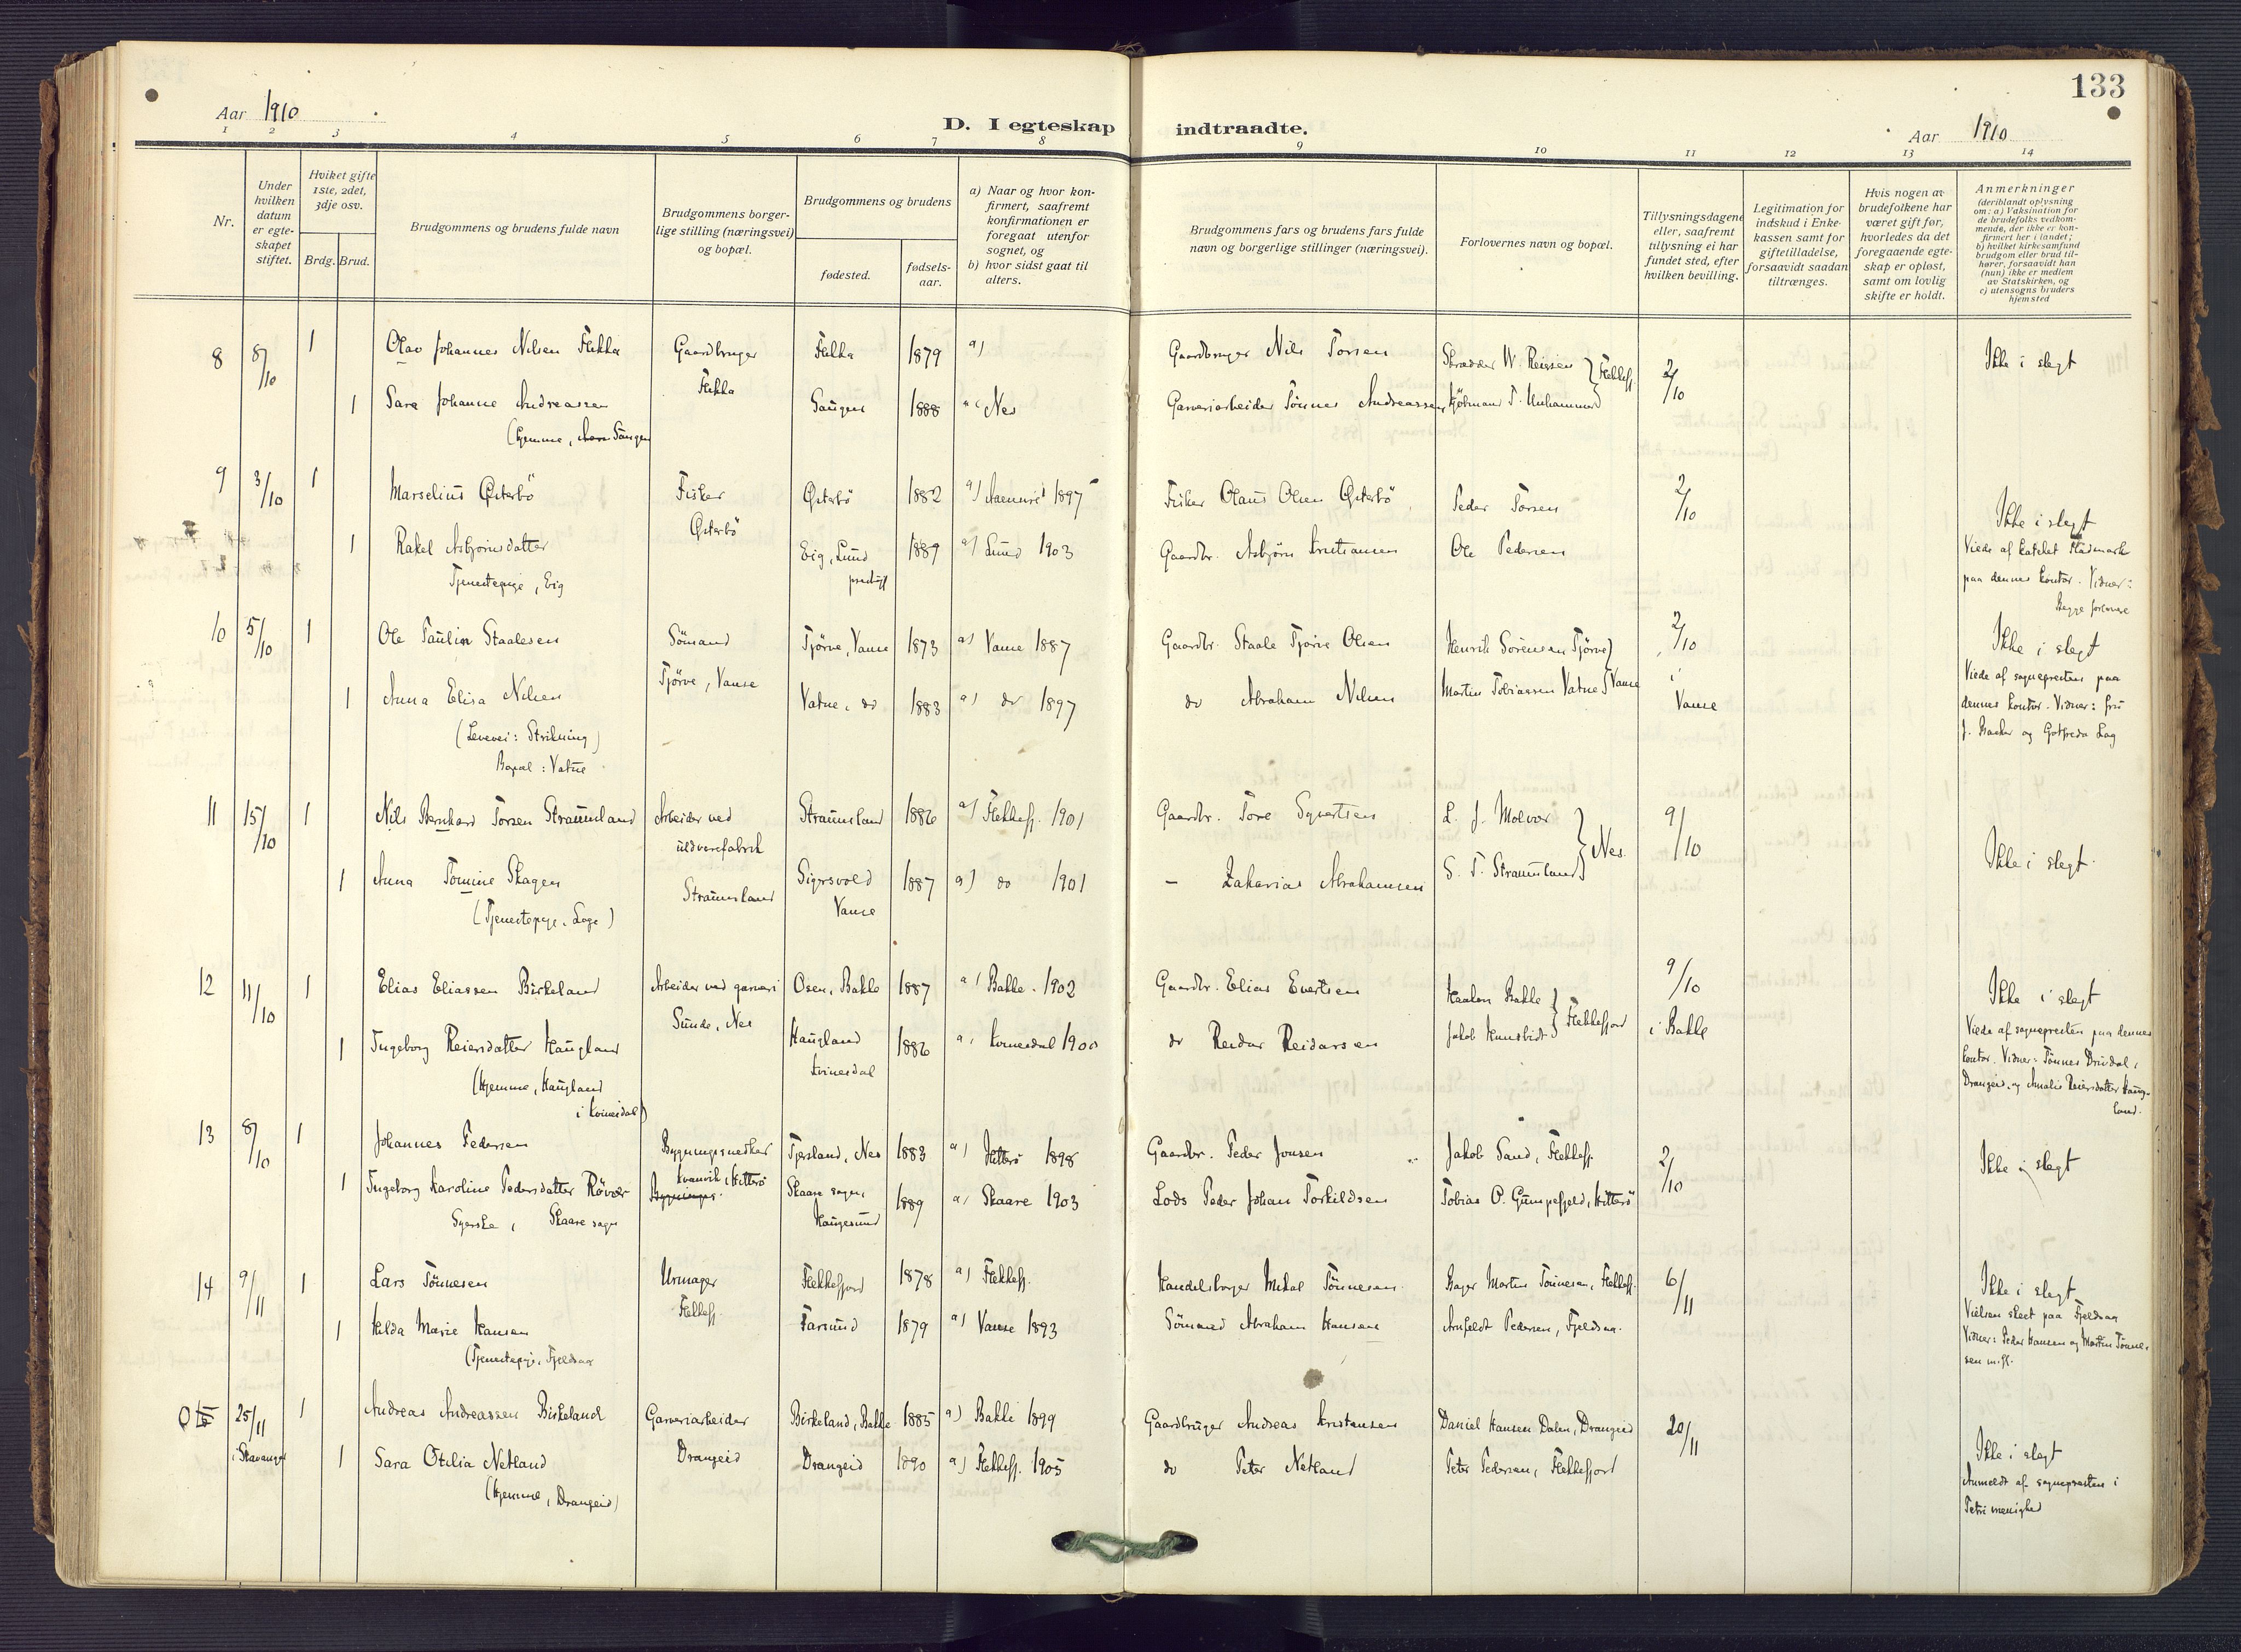 133
Aar 1910
D. I egteskap indtraadte.
Aar 1910
1 2 3 4 5 6 7 8 9 10 11 12 13 14
Nr.
Under hvilken datum er egteskapet stiftet.
Hviket gifte 1ste, 2det, 3dje osv.
Brdg. Brud.
Brudgommens og brudens fulde navn
Brudgommens borgerlige stilling (næringsvei) og bopæl.
Brudgommens og brudens
fødested.
fødselsaar.
a) Naar og hvor konfirmert, saafremt konfirmationen er foregaat utenfor sognet, og
b) hvor sidst gaat til alters.
Brudgommens fars og brudens fars fulde navn og borgerlige stillinger (næringsvei).
Forlovernes navn og bopæl.
Tillysningsdagene eller, saafremt tillysning ei har fundet sted, efter hvilken bevilling.
Legitimation for indskud i Enkekassen samt for giftetilladelse, forsaavidt saadan tiltrænges.
Hvis nogen av brudefolkene har været gift før, hvorledes da det foregaaende egteskap er opløst, samt om lovlig skifte er holdt.
Anmerkninger (deriblandt oplysning om: a) Vaksination for de brudefolks vedkommende, der ikke er konfirmert her i landet; b) hvilket kirkesamfund brudgom eller brud tilhører, forsaavidt han (hun) ikke er medlem av Statskirken, og c) utensogns bruders hjemsted
8 8/10 1 Olav Johannes Nilsen Flikka Gaardbruger Flikka 1879 a) Gaardbruger Nils Torsen Skrædder W. Reiersen } Flekkefj. 2/10 Ikke i slegt
Flikka
1 Sara Johanne Andreassen 1888 Nes Garveriarbeider Tönnes Andreassen
(Hjemme,
9 3/10 1 Marselius Østerbö Fisker Østerbö 1882 a) 1897 Fisker Olaus Olsen Østerbö Peder Torsen 2/10 Ikke i slegt
Østerbö
1 Rakel Asbjørnsdatter Eig, Lund 1889 a) Lund 1903 Gaardbr. Asbjörn Kristiansen Ole Pedersen
Tjenestepige, Eig
Viede af
paa dennes kontor. Vidner:
Begge forlovere
10 5/10 1 Ole Paulin Staalesen Sömand Tjörve, Vanse 1873 a) Vanse 1887 Gaardbr. Staale Tjörve Olsen Henrik Sörensen Tjörve } 2/10 Ikke i slegt
Tjörve, Vanse
1 Anna Elisa Nilsen Vatne, do 1883 a) do 1897 do Abraham Nilsen Martin Tobiassen Vatne } Vanse i Vanse
(Levevei: Strikning)
Bopæl: Vatne
Viede af sognepresten paa
dennes kontor. Vidner: fru
J. Barker og Lag
11 15/10 1 Nils Bernhard Torsen Straumland Arbeider ved Straumsland 1886 a) Flekkefj. 1901 Gaardbr. Tore Syvertsen L. J. Molvær } Nes. 9/10 Ikke i slegt
uldvarefabrik
1 Anna Tomine Skagen Straumsland Sigersvold 1887 a) do 1901 – Zakarias Abrahamsen S. T. Straumland
(Tjenestepige, Loge) Vanse
12 11/10 1 Elias Eliassen Birkeland Arbeider ved garveri Osen, Bakke 1887 a) Bakke. 1902 Gaardbr. Elias Evertsen Haakon Bakke } Flekkefjord 9/10 Ikke i slegt
Sunde, Nes
1 Ingeborg Reiersdatter Haugland Haugland 1886 a) Kvinesdal 1900 do Reidar Reidarsen Jakob i Bakke
(Hjemme, Haugland Kvinesdal
i Kvinesdal)
Viede af sognepresten paa dennes
kontor. Vidner: Tönnes Drivdal,
Drangeid, og Amalie Reiersdatter Haug-
land.
13 8/10 1 Johannes Pedersen Bygningssnedker Tjersland, Nes 1883 a) Hitterö 1898 Gaardbr. Peder Jonsen Jakob Sand, Flekkefj. 2/10 Ikke i slegt
Kvanvik, Hitterö
1 Ingeborg Karoline Pedersdatter Rövær Skaare sogn, 1889 a) Skaare 1903 Lods Peder Johan Torkildsen Tobias O. Gumpefjeld, Hitterö
Syerske, Skaare sogn Haugesund
14 9/11 1 Lars Tönnesen Urmager Flekkefjord 1878 a) Flekkefj. Handelsborger Mikal Tönnesen Bager Martin Tönnesen, Flekkefj. 6/11 Ikke i slegt
Flekkefj.
1 Hilda Marie Hansen Farsund 1879 a) Vanse 1893 Sömand Abraham Hansen Arnfeldt Pedersen, Fjeldsaa.
(Tjenestepige, Fjeldsaa
Vielsen skeet paa Fjeldsaa
Vidner: Peder Hansen og Martin Tönne-
sen m.fl.
25/11 1 Andreas Andreassen Birkeland Garveriarbeider Birkeland, Bakke 1885 a) Bakke 1899 Gaardbruger Andreas Kristensen Daniel Hansen Dalen, Drangeid 20/11 Ikke i slegt
i Stavanger
1 Sara Otelia Netland Drangeid Drangeid 1890 a) Flekkefj. 1905 do Peter Netland Peter Pedersen, Flekkefjord
(Hjemme, Drangeid)
Anmeldt af sognepresten i
Petri menighed